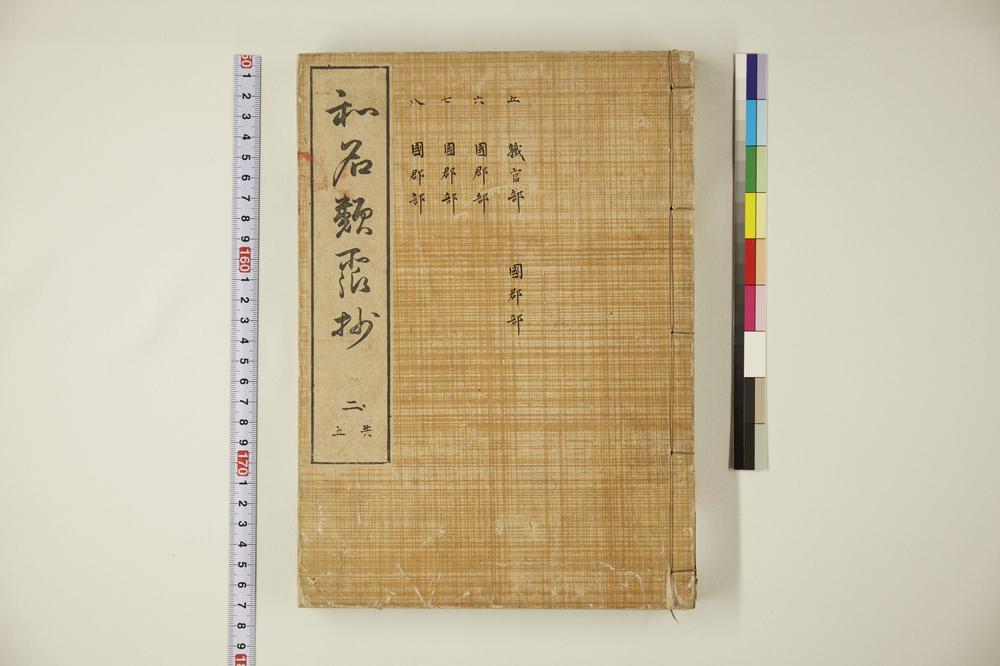 和名類聚抄
二
共五
五 職官部 國郡部
六 國郡部
七 國郡部
八 國郡部
60
1
2
3
4
5
6
7
8
9
160
1
2
3
4
5
6
7
8
9
170
1
2
3
4
5
6
7
8
9